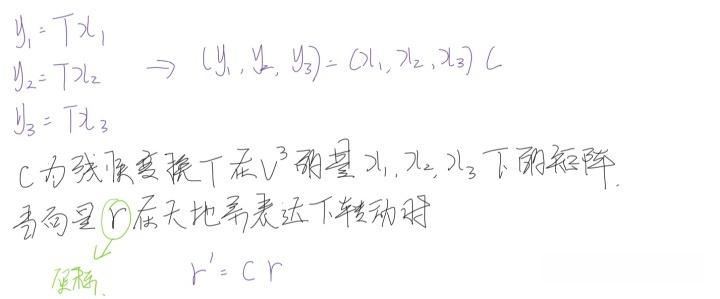 y₁ = Tx₁
y₂ = Tx₂ ⇒ (y₁, y₂, y₃) = (x₁, x₂, x₃) C
y₃ = Tx₃
C为线性变换T在V³的基x₁, x₂, x₃下的矩阵.
当向量r在大地系表达下转动时
坐标.
r' = Cr